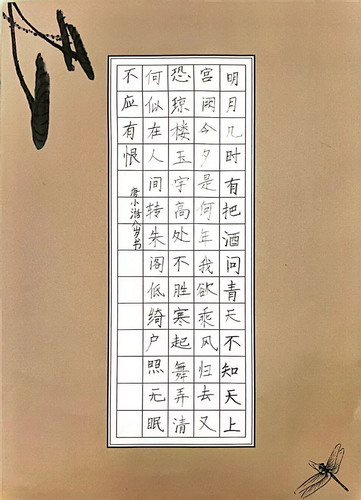 明月几时有把酒问青天不知天上
宫阙今夕是何年我欲乘风归去又
恐琼楼玉宇高处不胜寒起舞弄清
何似在人间转朱阁低绮户照无眠
不应有恨
唐小八岁书